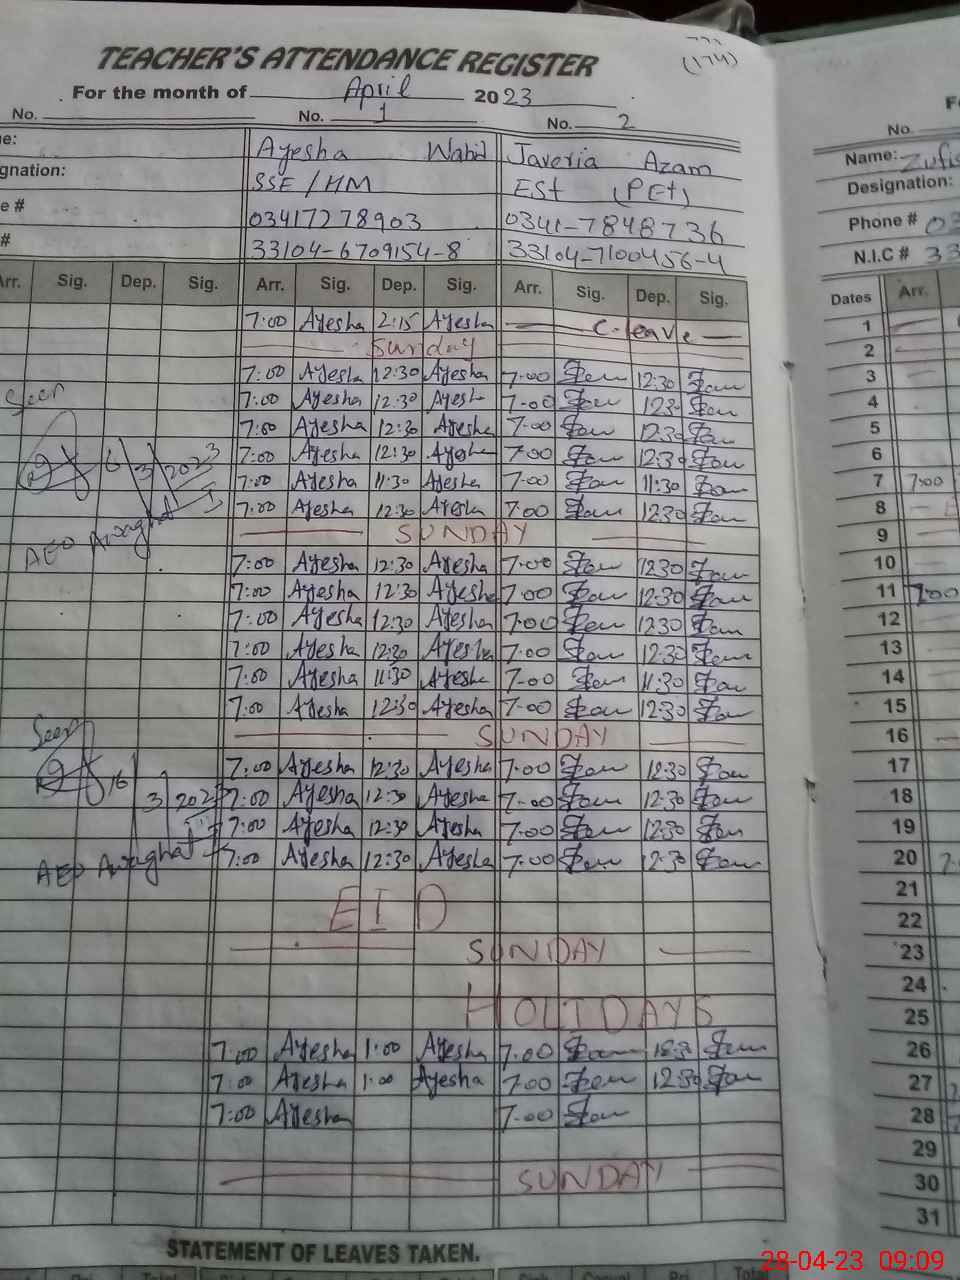 (174)
TEACHER'S ATTENDANCE REGISTER
For the month of April 2023
No. No. 1 No. 2
Ayesha Wahid Javeria Azam
gnation: SSE/HM EST (PET)
e # 03417278903 0341-7848736
# 33104-6709154-8 33104-7100456-4
Arr. Sig. Dep. Sig. Arr. Sig. Dep. Sig. Arr. Sig. Dep. Sig.
7:00 Ayesha 2:15 Ayesha C-leave
Sunday
7:00 Ayesha 12:30 Ayesha 7-00 12:30
7:00 Ayesha 12:30 Ayesha 7-00 1230
7:00 Ayesha 12:30 Ayesha 7-00 12:30
7:00 Ayesha 12:30 Ayesha 7-00 12:30
7:00 Ayesha 11:30 Ayesha 7-00 11:30
7:00 Ayesha 12:30 Ayesha 7-00 12:30
SUNDAY
7:00 Ayesha 12:30 Ayesha 7-00 1230
7:00 Ayesha 12:30 Ayesha 7-00 12:30
7:00 Ayesha 12:30 Ayesha 7-00 1230
7:00 Ayesha 12:30 Ayesha 7-00 12:30
7:00 Ayesha 11:30 Ayesha 7-00 11:30
7:00 Ayesha 12:30 Ayesha 7-00 12:30
SUNDAY
7:00 Ayesha 12:30 Ayesha 7-00 12:30
7:00 Ayesha 12:30 Ayesha 7-00 12:30
7:00 Ayesha 12:30 Ayesha 7-00 12:30
7:00 Ayesha 12:30 Ayesha 7-00 12:30
EID
SUNDAY
HOLIDAYS
7:00 Ayesha 1:00 Ayesha 7-00
7:00 Ayesha 1:00 Ayesha 7-00 12:30
7:00 Ayesha 7-00
SUNDAY
STATEMENT OF LEAVES TAKEN.
Seen
6/3/2023
AEO
Seen
16/3/202
AEO
No.
Name:
Designation:
Phone # 03
N.I.C # 33
Dates Arr.
1
2
3
4
5
6
7 7:00
8
9
10
11 7:00
12
13
14
15
16
17
18
19
20
21
22
23
24
25
26
27
28
29
30
31
28-04-23 09:09